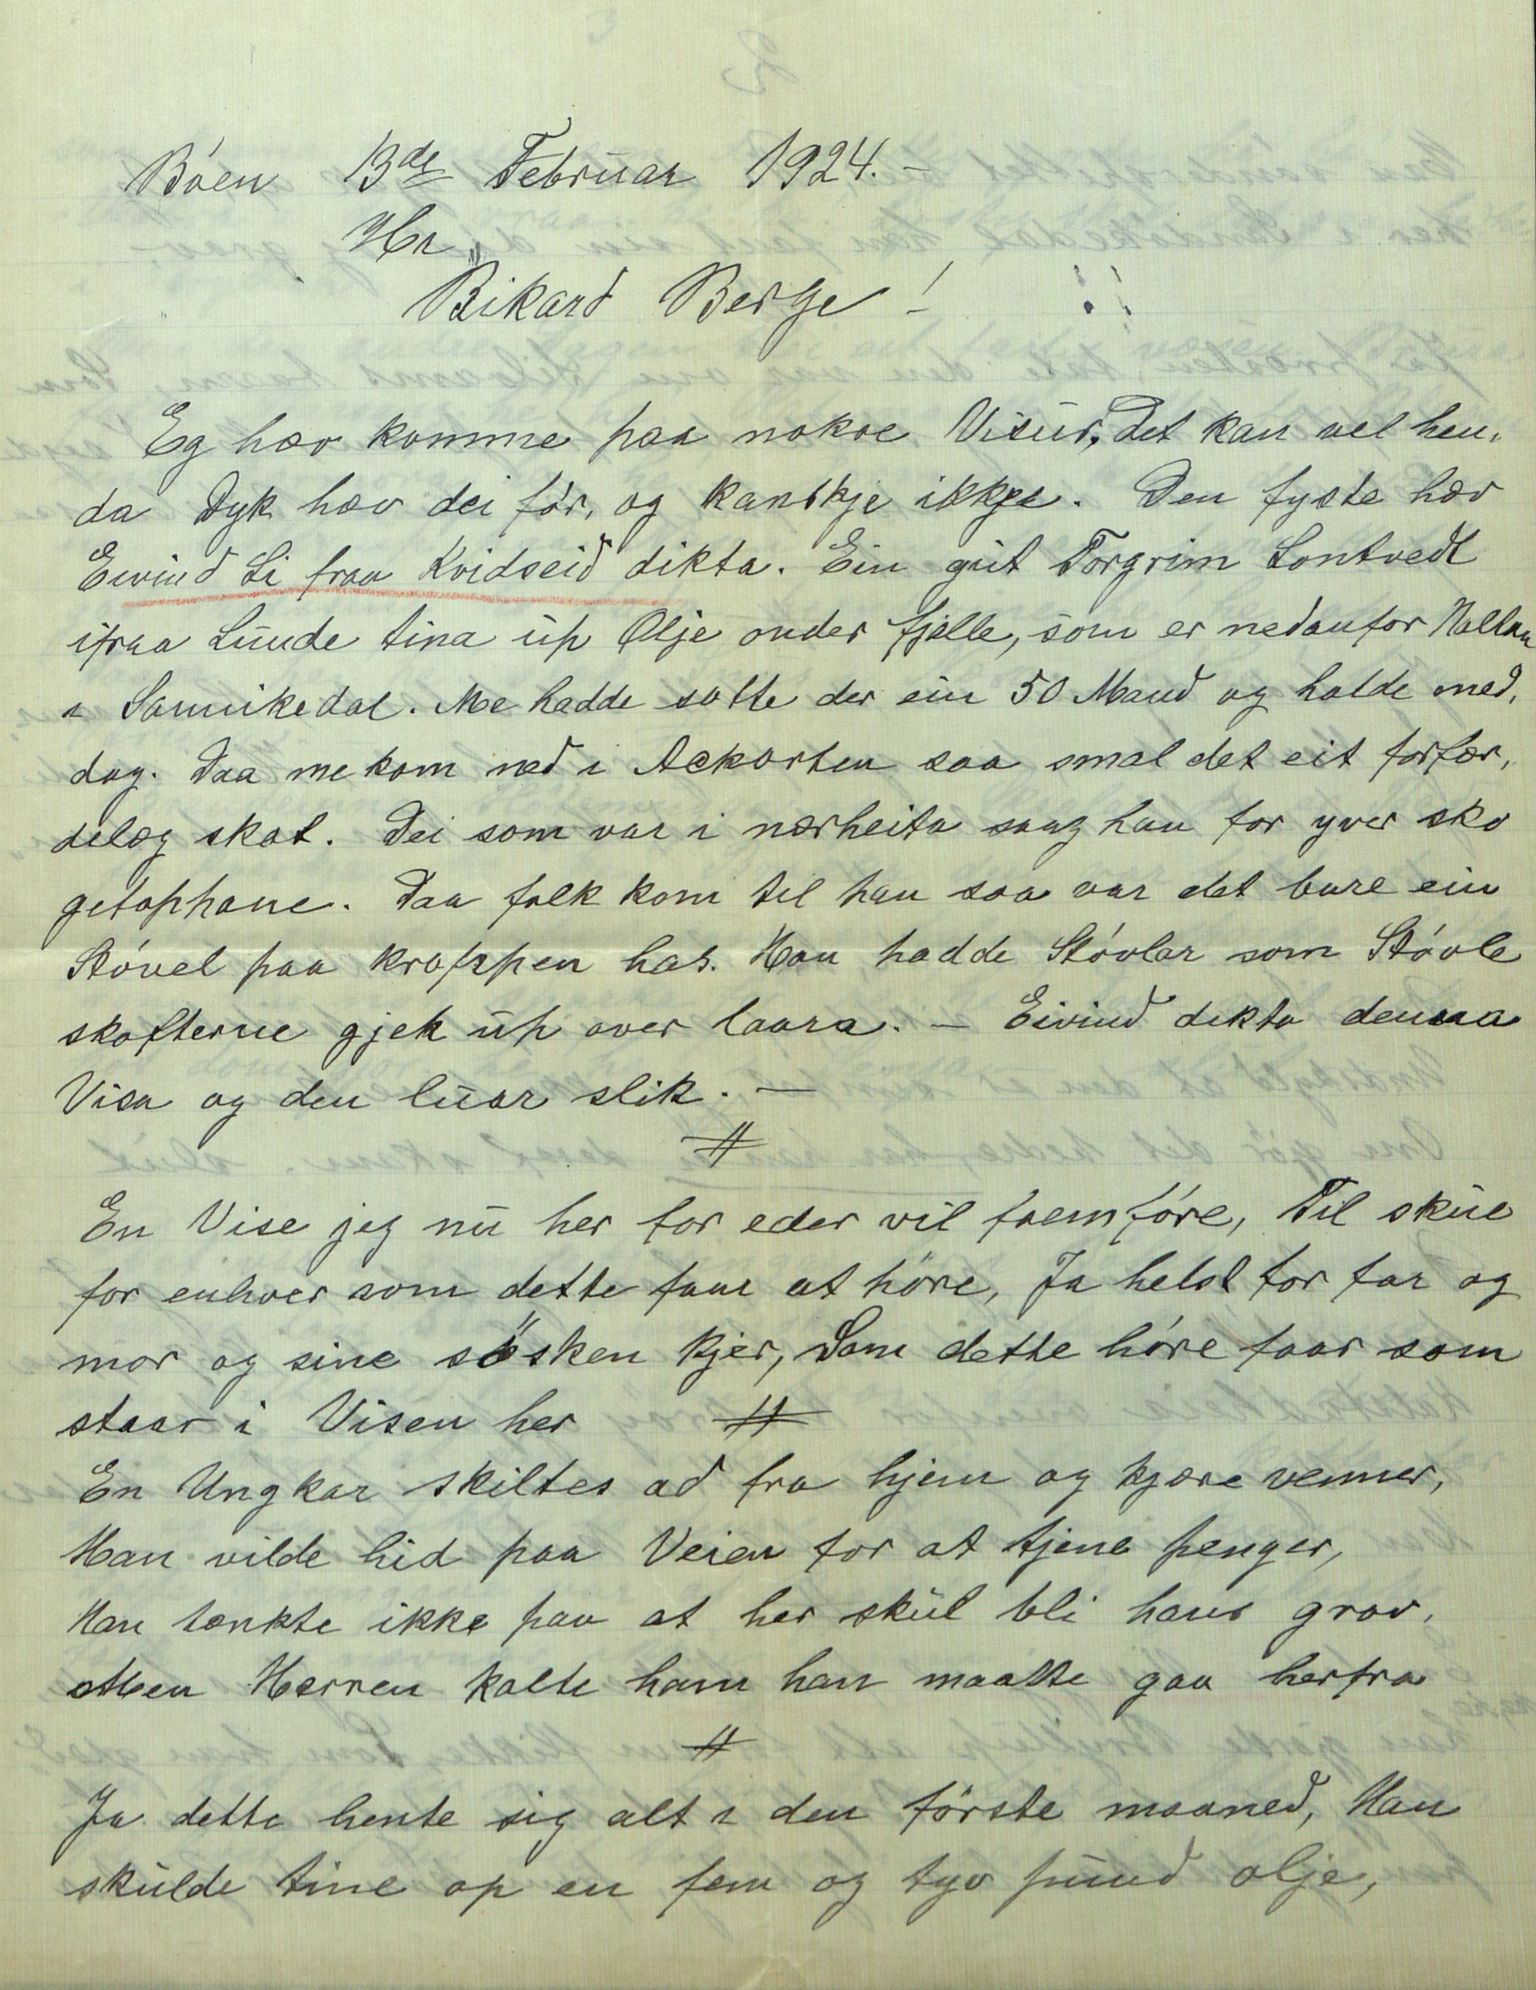 Bøen 13de Februar 1924.-
Hr,,
Rikard Berge!
Eg hæv komme paa nokre Visur, Det kan vel hen,
da Dyk hæv dei før, og kanskje ikkje. Den fyste hæv
Eivind Li fraa Kvidseid dikta. Ein gut Torgrim Lontvedt
ifraa Lunde tina up Olje onder fjelle, som er nedanfor
i Sannikedal. Me hadde sotte der ein 50 Mand og holde med,
dag. Daa me kom ned i Ackorten saa smal det eit forfær,
delæg skot. Dei som var i nærheita saag han for yver sko
getophane. Daa folk kom til han saa var det bare ein
Støvel paa kroppen has. Han hadde Støvlar som Støvle
skafterne gjek up over laara. - Eivind dikta denna
Visa og den luar slik. -
#
En Vise jeg nu her for eder vil fremføre, Til skue
for enhver som dette faar at høre, Ja helst for far og
mor og sine søsken kjer, Som dette høre faar som
staar i Visen her #
En Ungkar skiltes ad fra hjem og kjære venner,
Han vilde hid paa Veien for at tjene penger,
Han tænkte ikke paa at her skul bli hans grav,
Men Herren kalte ham han maatte gaa herfra
#
Ja dette hente sig alt i den første maaned, Han
skulde tine op en fem og tyv pund olje,